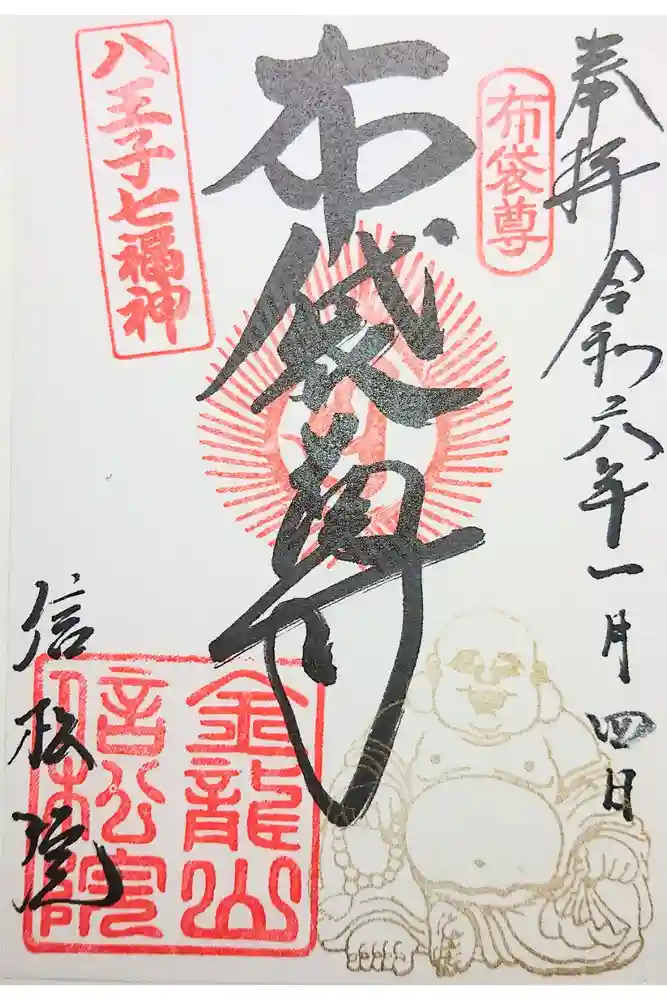 奉拝 令和六年一月四日
布袋尊
布袋尊
八王子七福神
信松院
金龍山
信松院